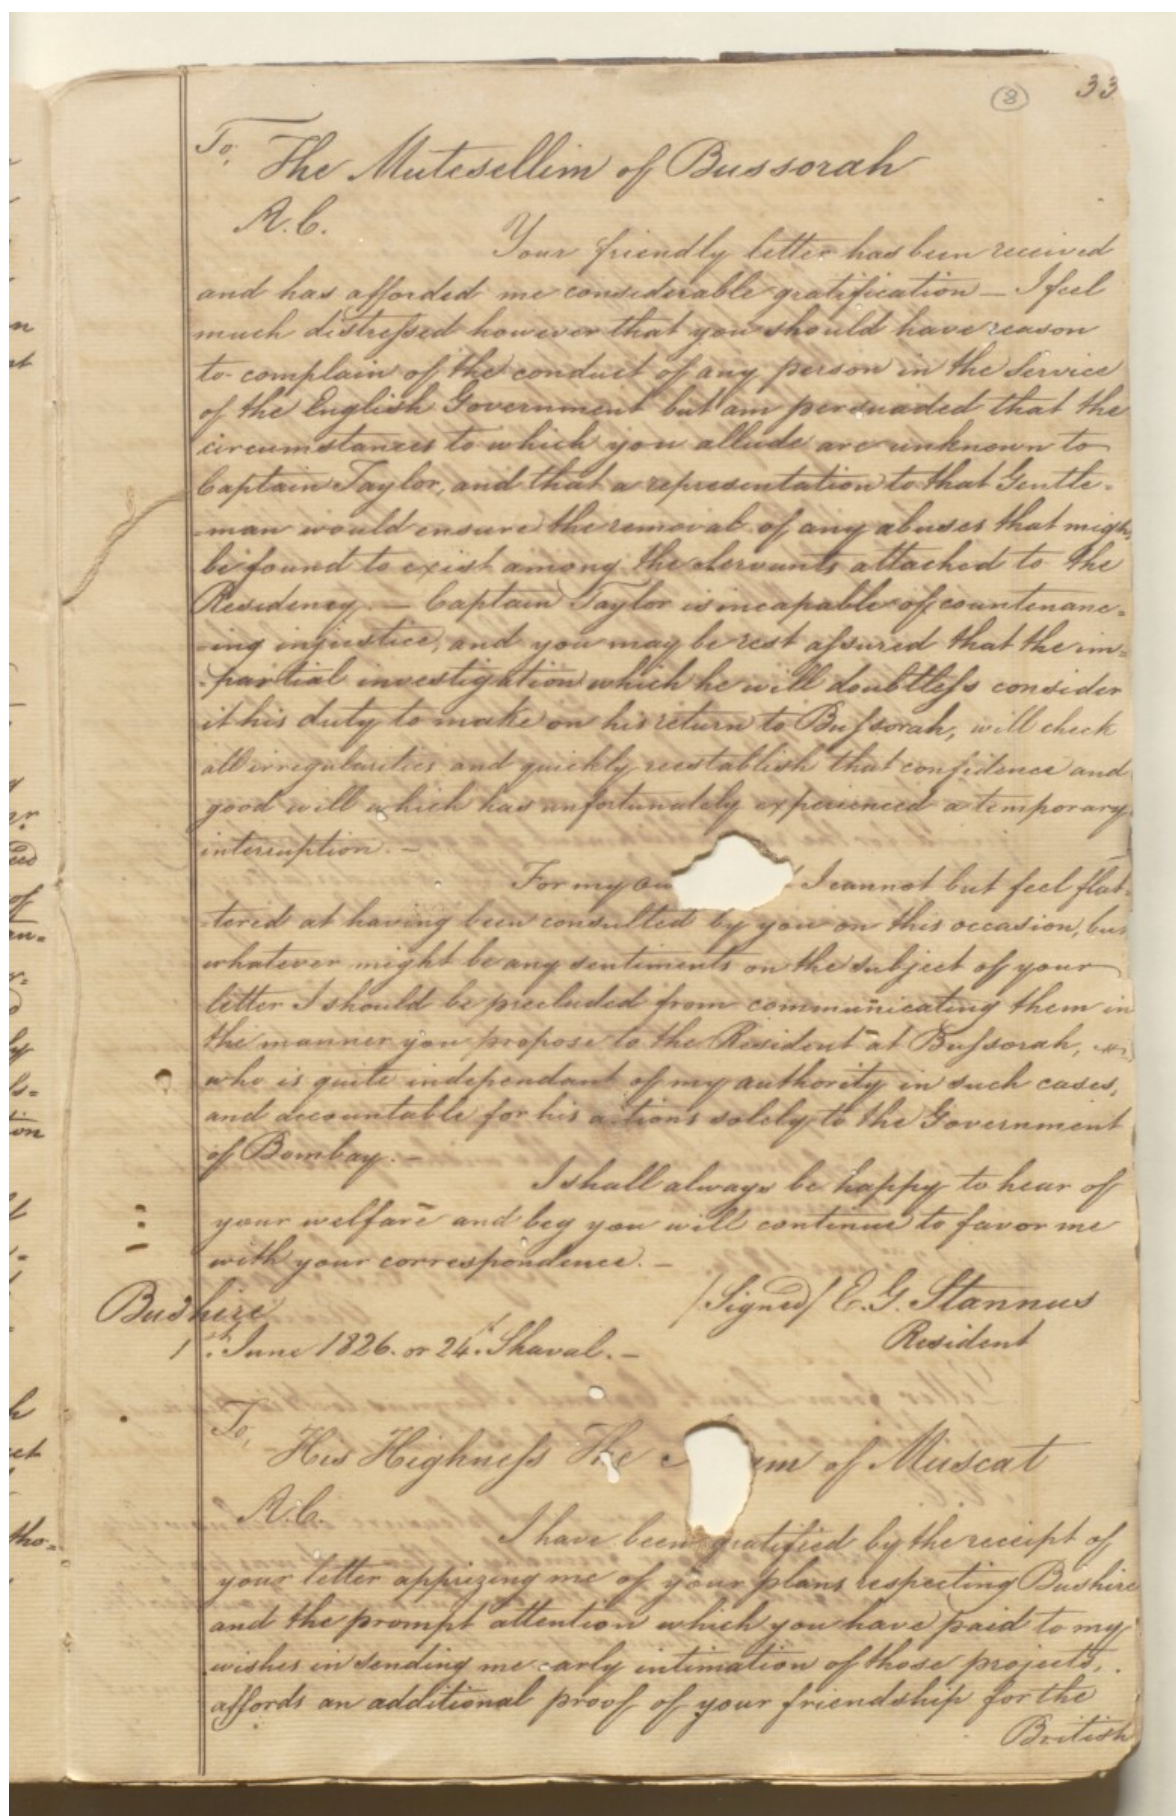 8
33
To,
The Mutesellim of Bussorah
A.C.
Your friendly letter has been received
and has afforded me considerable gratification — I feel
much distressed however that you should have reason
to complain of the conduct of any person in the Service
of the English Government but am persuaded that the
circumstances to which you allude are unknown to
Captain Taylor, and that a representation to that Gentle-
-man would ensure the removal of any abuses that might
be found to exist among the Servants attached to the
Residency. — Captain Taylor is incapable of countenanc-
-ing injustice, and you may be rest assured that the im-
-partial investigation which he will doubtless consider
it his duty to make on his return to Bussorah, will check
all irregularities and quickly reestablish that confidence and
good will which has unfortunately experienced a temporary
interruption. —
For my I cannot but feel flat-
-tered at having been consulted by you on this occasion, but
whatever might be any sentiments on the subject of your
letter I should be precluded from communicating them in
the manner you propose to the Resident at Bussorah,
who is quite independant of my authority in such cases,
and accountable for his actions solely to the Government
of Bombay. —
I shall always be happy to hear of
your welfare and beg you will continue to favor me
with your correspondence. —
/Signed/ E. G. Stannus
Bushire
Resident
1st. June 1826. or 24th. Shaval. —
To,
His Highness The of Muscat
A.C.
I have been gratified by the receipt of
your letter apprizing me of your plans respecting Bushire
and the prompt attention which you have paid to my
wishes in sending me early intimation of those projects,
affords an additional proof of your friendship for the
British